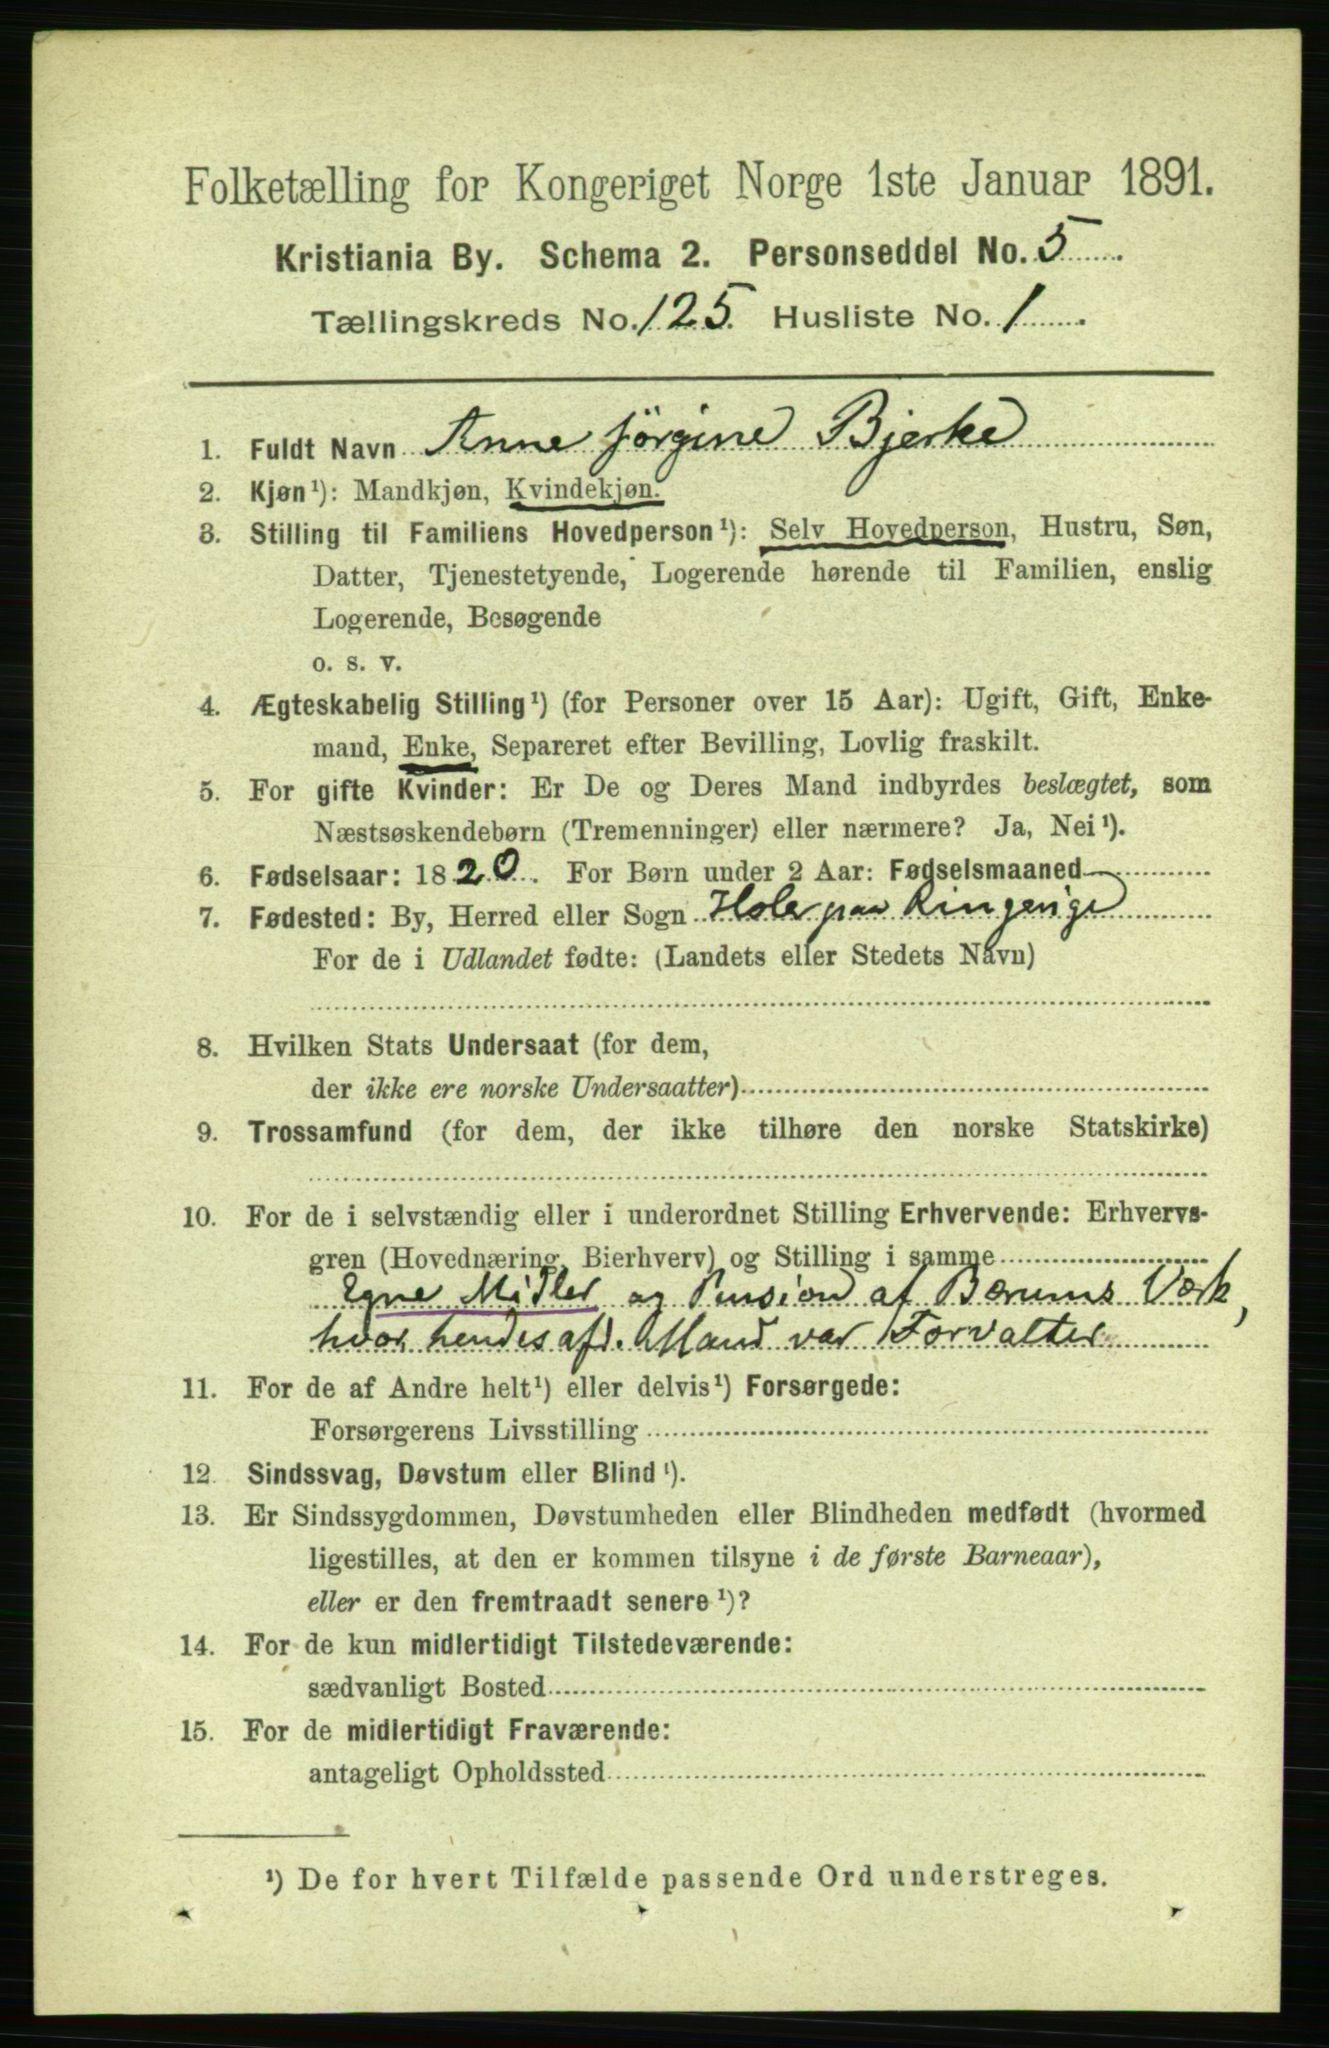 Folketælling for Kongeriget Norge 1ste Januar 1891.
Kristiania By. Schema 2. Personseddel No. 5
Tællingskreds No. 125. Husliste No. 1
1. Fuldt Navn Anne Jörgine Bjerke
2. Kjøn¹): Mandkjøn, Kvindekjøn.
3. Stilling til Familiens Hovedperson¹): Selv Hovedperson, Hustru, Søn,
Datter, Tjenestetyende, Logerende hørende til Familien, enslig
Logerende, Besøgende
o. s. v.
4. Ægteskabelig Stilling¹) (for Personer over 15 Aar): Ugift, Gift, Enke-
mand, Enke, Separeret efter Bevilling, Lovlig fraskilt.
5. For gifte Kvinder: Er De og Deres Mand indbyrdes beslægtet, som
Næstsøskendebørn (Tremenninger) eller nærmere? Ja, Nei¹).
6. Fødselsaar: 1820. For Børn under 2 Aar: Fødselsmaaned
7. Fødested: By, Herred eller Sogn Hole paa Ringerige
For de i Udlandet fødte: (Landets eller Stedets Navn)
8. Hvilken Stats Undersaat (for dem,
der ikke ere norske Undersaatter)
9. Trossamfund (for dem, der ikke tilhøre den norske Statskirke)
10. For de i selvstændig eller i underordnet Stilling Erhvervende: Erhvervs-
gren (Hovednæring, Bierhverv) og Stilling i samme
Egne Midler og Pension af Bærums Værk,
hvor hendes afd. Mand var Forvalter
11. For de af Andre helt¹) eller delvis¹) Forsørgede:
Forsørgerens Livsstilling
12. Sindssvag, Døvstum eller Blind¹).
13. Er Sindssygdommen, Døvstumheden eller Blindheden medfødt (hvormed
ligestilles, at den er kommen tilsyne i de første Barneaar),
eller er den fremtraadt senere¹)?
14. For de kun midlertidigt Tilstedeværende:
sædvanligt Bosted
15. For de midlertidigt Fraværende:
antageligt Opholdssted
¹) De for hvert Tilfælde passende Ord understreges.